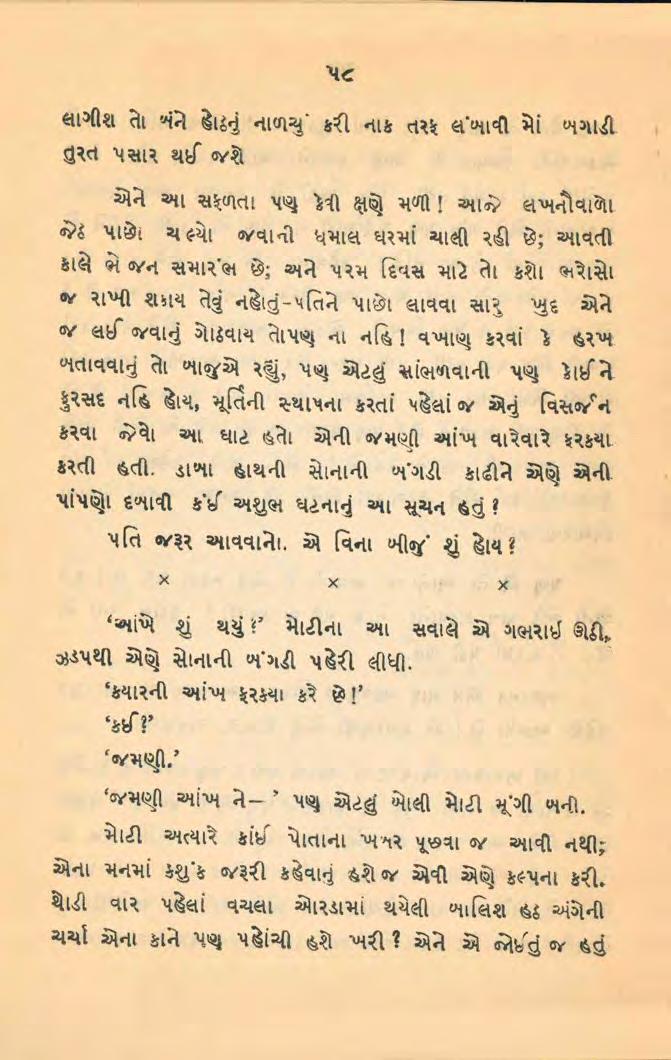 ૫૮
લાગીશ તો બંને હોઠનું નાળચું કરી નાક તરફ લંબાવી મોં બગાડી
તુરત પસાર થઈ જશે
એને આ સફળતા પણ કેવી ક્ષણે મળી! આજે લખનૌવાળો
જેઠ પાછો ચલ્યો જવાની ધમાલ ઘરમાં ચાલી રહી છે; આવતી
કાલે ભેાજન સમારંભ છે; અને પરમ દિવસ માટે તો કશો ભરોસો
જ રાખી શકાય તેવું નહોતું-પતિને પાછો લાવવા સારુ ખુદ એને
જ લઈ જવાનું ગોઠવાય તોપણ ના નહિ! વખાણ કરવાં કે હરખ
બતાવવાનું તો બાજુએ રહ્યું, પણ એટલું સાંભળવાની પણ કોઈને
ફુરસદ નહિ હોય, મૂર્તિની સ્થાપના કરતાં પહેલાં જ એનું વિસર્જન
કરવા જેવો આ ઘાટ હતો એની જમણી આંખ વારેવારે ફરકયા
કરતી હતી. ડાબા હાથની સોનાની બંગડી કાઢીને એણે એની
પાંપણો દબાવી કંઈ અશુભ ઘટનાનું આ સૂચન હતું?
પતિ જરૂર આવવાનો. એ વિના બીજું શું હોય?
× × ×
‘આંખે શું થયું?’ મોટીના આ સવાલે એ ગભરાઈ ઊઠી,
ઝડપથી એણે સોનાની બંગડી પહેરી લીધી.
‘કયારની આંખ ફરકયા કરે છે!’
‘કઈ?’
‘જમણી.’
‘જમણી આંખ ને— ’ પણ એટલું બોલી મોટી મૂંગી બની.
મોટી અત્યારે કાંઈ પોતાના ખબર પૂછવા જ આવી નથી;
એના મનમાં કશુંક જરૂરી કહેવાનું હશે જ એવી એણે કલ્પના કરી.
થોડી વાર પહેલાં વચલા ઓરડામાં થયેલી બાલિશ હઠ અંગેની
ચર્ચા એના કાને પણ પહોંચી હશે ખરી? એને એ જોઈતું જ હતું